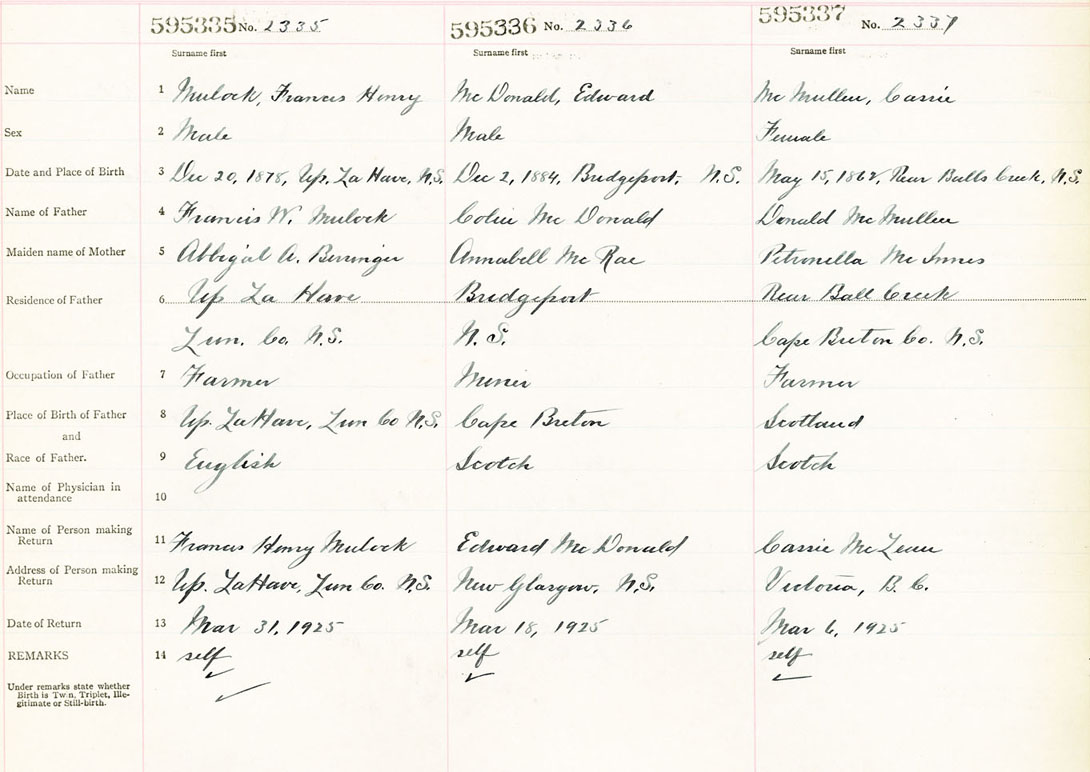 595335 No. 2335 595336 No. 2336 595337 No. 2337
Surname first Surname first Surname first
Name 1 Mulock, Francis Henry Mc Donald, Edward Mc Mullen, Cassie
Sex 2 Male Male Female
Date and Place of Birth 3 Dec 20, 1878, Up. La Have, N.S. Dec 2, 1884, Bridgeport, N.S. May 15, 1862, Rear Balls Creek, N.S.
Name of Father 4 Francis W. Mulock Colin Mc Donald Donald Mc Mullen
Maiden name of Mother 5 Abbigal A. Berringer Annabell Mc Rae Petronella Mc Innes
Residence of Father 6 Up La Have Bridgeport Rear Ball Creek
Lun. Co. N.S. N.S. Cape Breton Co. N.S.
Occupation of Father 7 Farmer Miner Farmer
Place of Birth of Father 8 Up. LaHave, Lun Co N.S. Cape Breton Scotland
and
Race of Father. 9 English Scotch Scotch
Name of Physician in
attendance 10
Name of Person making
Return 11 Francis Henry Mulock Edward Mc Donald Cassie McLean
Address of Person making
Return 12 Up. LaHave, Lun Co. N.S. New Glasgow, N.S. Victoria, B.C.
Date of Return 13 Mar 31, 1925 Mar 18, 1925 Mar 6, 1925
REMARKS 14 self self self
Under remarks state whether
Birth is Twin, Triplet, Ille-
gitimate or Still-birth.